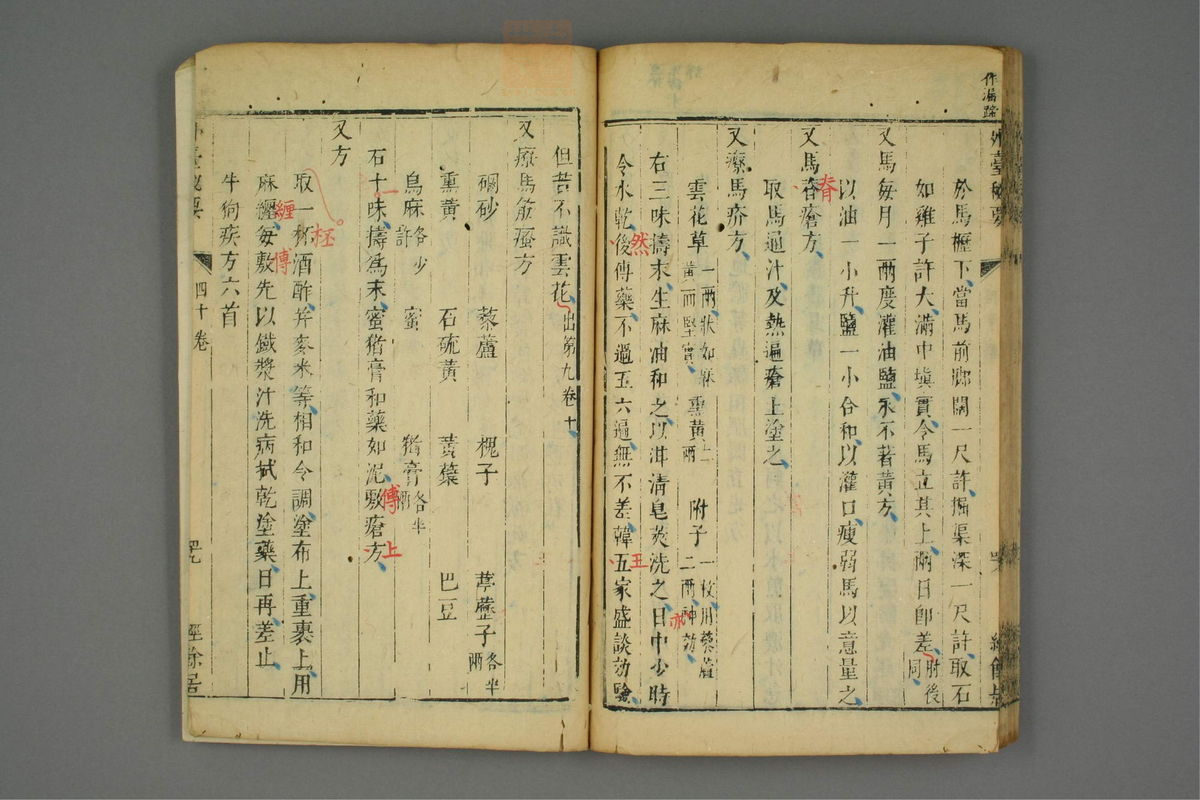 作漏蹄
外臺秘要
於馬櫪下當馬前脚闊一尺許掘渠深一尺許取石
如雞子許大滿中填實令馬立其上兩日卽差肘後同
又馬每月一兩度灌油鹽永不著黃方
以油一小升鹽一小合和以灌口瘦弱馬以意量之
又馬脊瘡方
脊
取馬通汁及熱遍瘡上塗之
又療馬疥方
雲花草一兩狀如麻黃而堅實 熏黃二兩 附子一枚用藜蘆二兩神効
亦
右三味擣末生麻油和之以泔清皂莢洗之日中少時
令水乾後傅藥不過五六遍無不差韓五家盛談効驗
然
王
但苦不識雲花出第九卷十
又療馬筋瘙方
硇砂 藜蘆 槐子 葶藶子各半兩
熏黃 石硫黃 菱蘖 巴豆
烏麻各少許 蜜 猪膏各半兩
石十味擣爲末蜜猪膏和藥如泥敷瘡方
一
傅
上
又方
取一杯酒酢并麥米等相和令調塗布上重裹上用
坯
麻纏每敷先以鐵漿汁洗病拭乾塗藥日再差止
纏
傅
牛狗疾方六首
外臺秘要
四十卷
經餘居